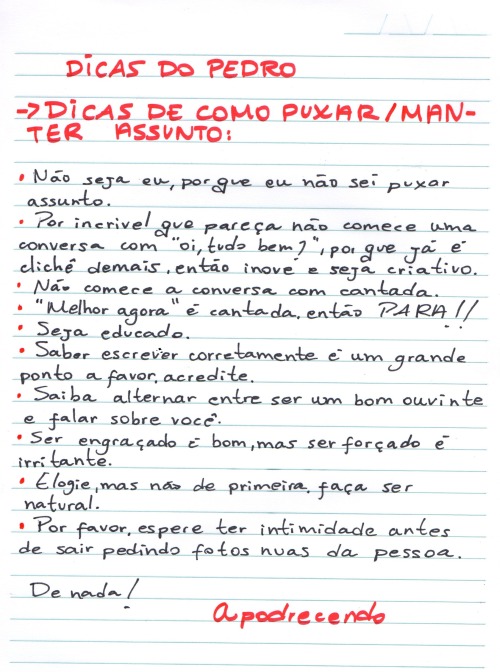 DICAS DO PEDRO
→DICAS DE COMO PUXAR/MAN-
TER ASSUNTO:
• Não seja eu, porque eu não sei puxar
assunto.
• Por incrivel que pareça não comece uma
conversa com "oi, tudo bem?", porque já é
clichê demais, então inove e seja criativo.
• Não comece a conversa com cantada.
• "Melhor agora" é cantada, então PARA!!
• Seja educado.
• Saber escrever corretamente é um grande
ponto a favor, acredite.
• Saiba alternar entre ser um bom ouvinte
e falar sobre você.
• Ser engraçado é bom, mas ser forçado é
irritante.
• Elogie, mas não de primeira, faça ser
natural.
• Por favor, espere ter intimidade antes
de sair pedindo fotos nuas da pessoa.
De nada!
Apodrecendo